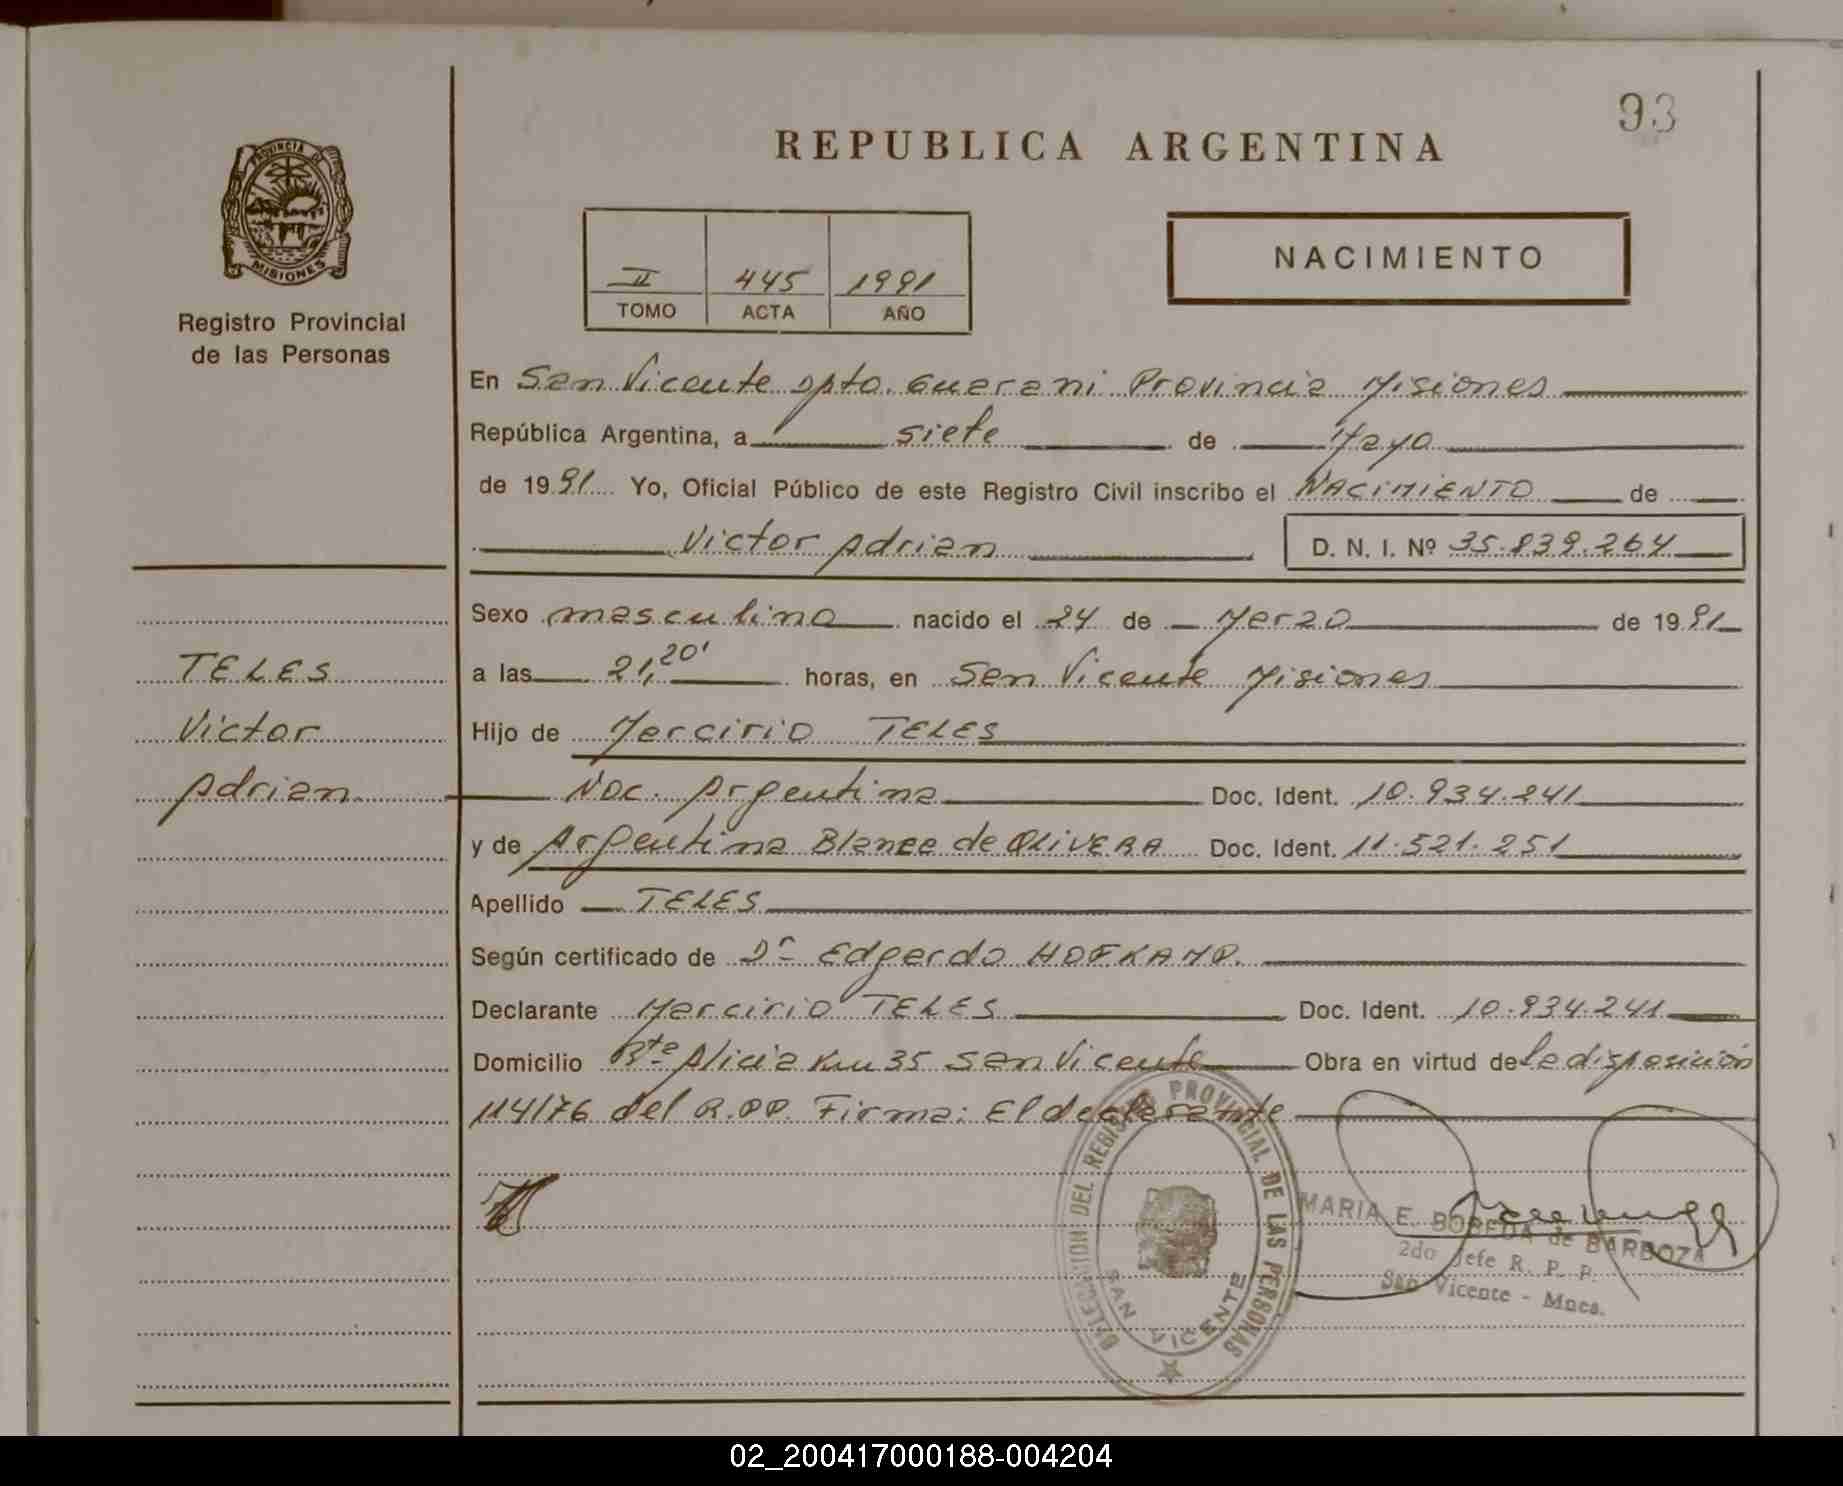 93
REPUBLICA ARGENTINA
PROVINCIA DE
MISIONES
Registro Provincial
de las Personas
II 445 1991
TOMO ACTA AÑO
NACIMIENTO
En San Vicente Dpto. Guarani Provincia Misiones
República Argentina, a siete de Mayo
de 1991 Yo, Oficial Público de este Registro Civil inscribo el NACIMIENTO de
Victor Adrian D. N. I. Nº 35.839.264
Sexo masculino nacido el 24 de Marzo de 1991
TELES
a las 21,20' horas, en San Vicente Misiones
Victor
Hijo de Mercirio TELES
Adrian
Nac. Argentina Doc. Ident. 10.934.241
y de Argentina Blanca de OLIVERA Doc. Ident. 11.521.251
Apellido TELES
Según certificado de Dr Edgardo HOFKAMP.
Declarante Mercirio TELES Doc. Ident. 10.934.241
Domicilio Rta Alicia Km 35 San Vicente Obra en virtud de la disposición
114/76 del R.PP. Firma: El declarante
DELEGACION DEL REGISTRO PROVINCIAL DE LAS PERSONAS
SAN VICENTE
MARIA E. BOBEDA de BARBOZA
2do Jefe R. P. P.
San Vicente - Mnes.
02_200417000188-004204